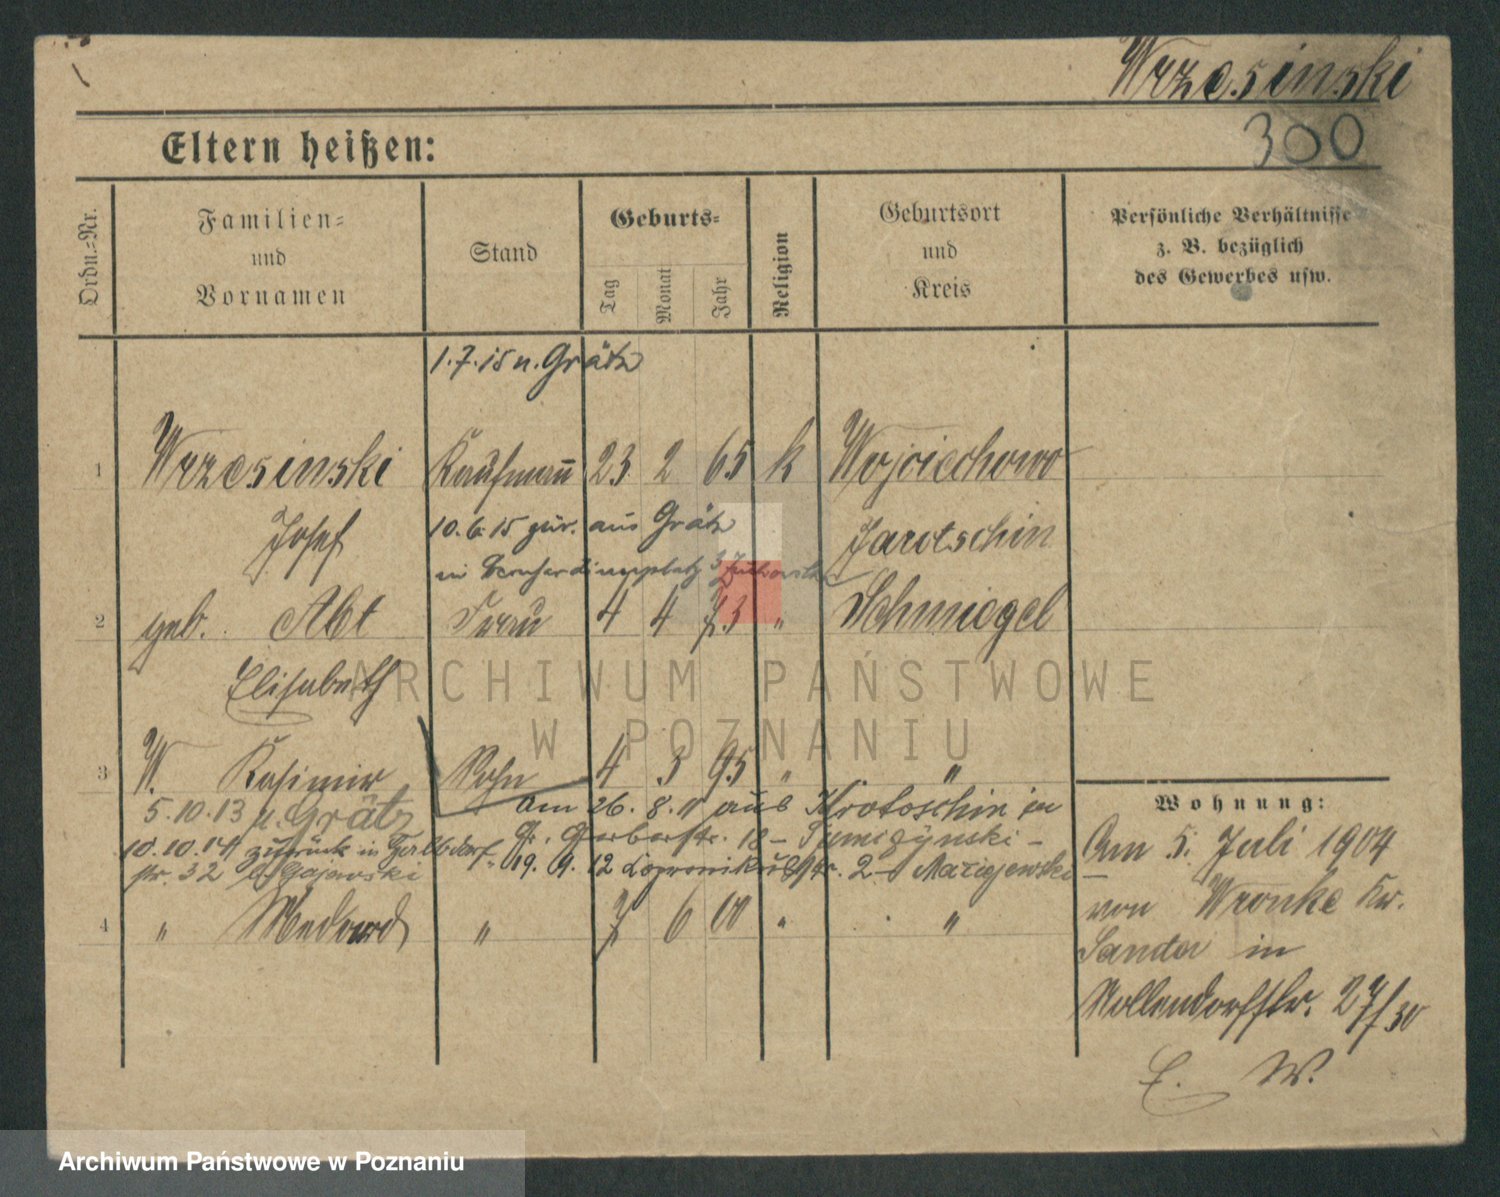 Wrzesinski
300
Eltern heißen:
Ordn.-Nr.
Familien-
und
Vornamen
Stand
Geburts-
Tag
Monat
Jahr
Religion
Geburtsort
und
Kreis
Persönliche Verhältnisse
z. B. bezüglich
des Gewerbes usw.
1.7.15 n. Grätz
1 Wrzesinski Kaufmann 23 2 65 k Wojciechowo
Josef 10.6.15 zur. aus Grätz Jarotschin
in Bernhardinerplatz 3
2 geb. Abt Frau 4 4 73 " Schmiegel
Elisabeth
ARCHIWUM PAŃSTWOWE
W POZNANIU
3 W. Kasimir Sohn 4 3 95 " "
5.10.13 n. Grätz am 26. 8. 11 aus Krotoschin in
10.10.14 zurück in Gr. Gerberstr. 18 -
str. 32 b. Gajewski 19. 9. 12 2 - Maciejewski
4 " Medard " 7 6 00 " "
Wohnung:
Am 5. Juli 1904
von Wronke Kr.
Samter in
Nollendorfstr. 27/30
E. W.
Archiwum Państwowe w Poznaniu